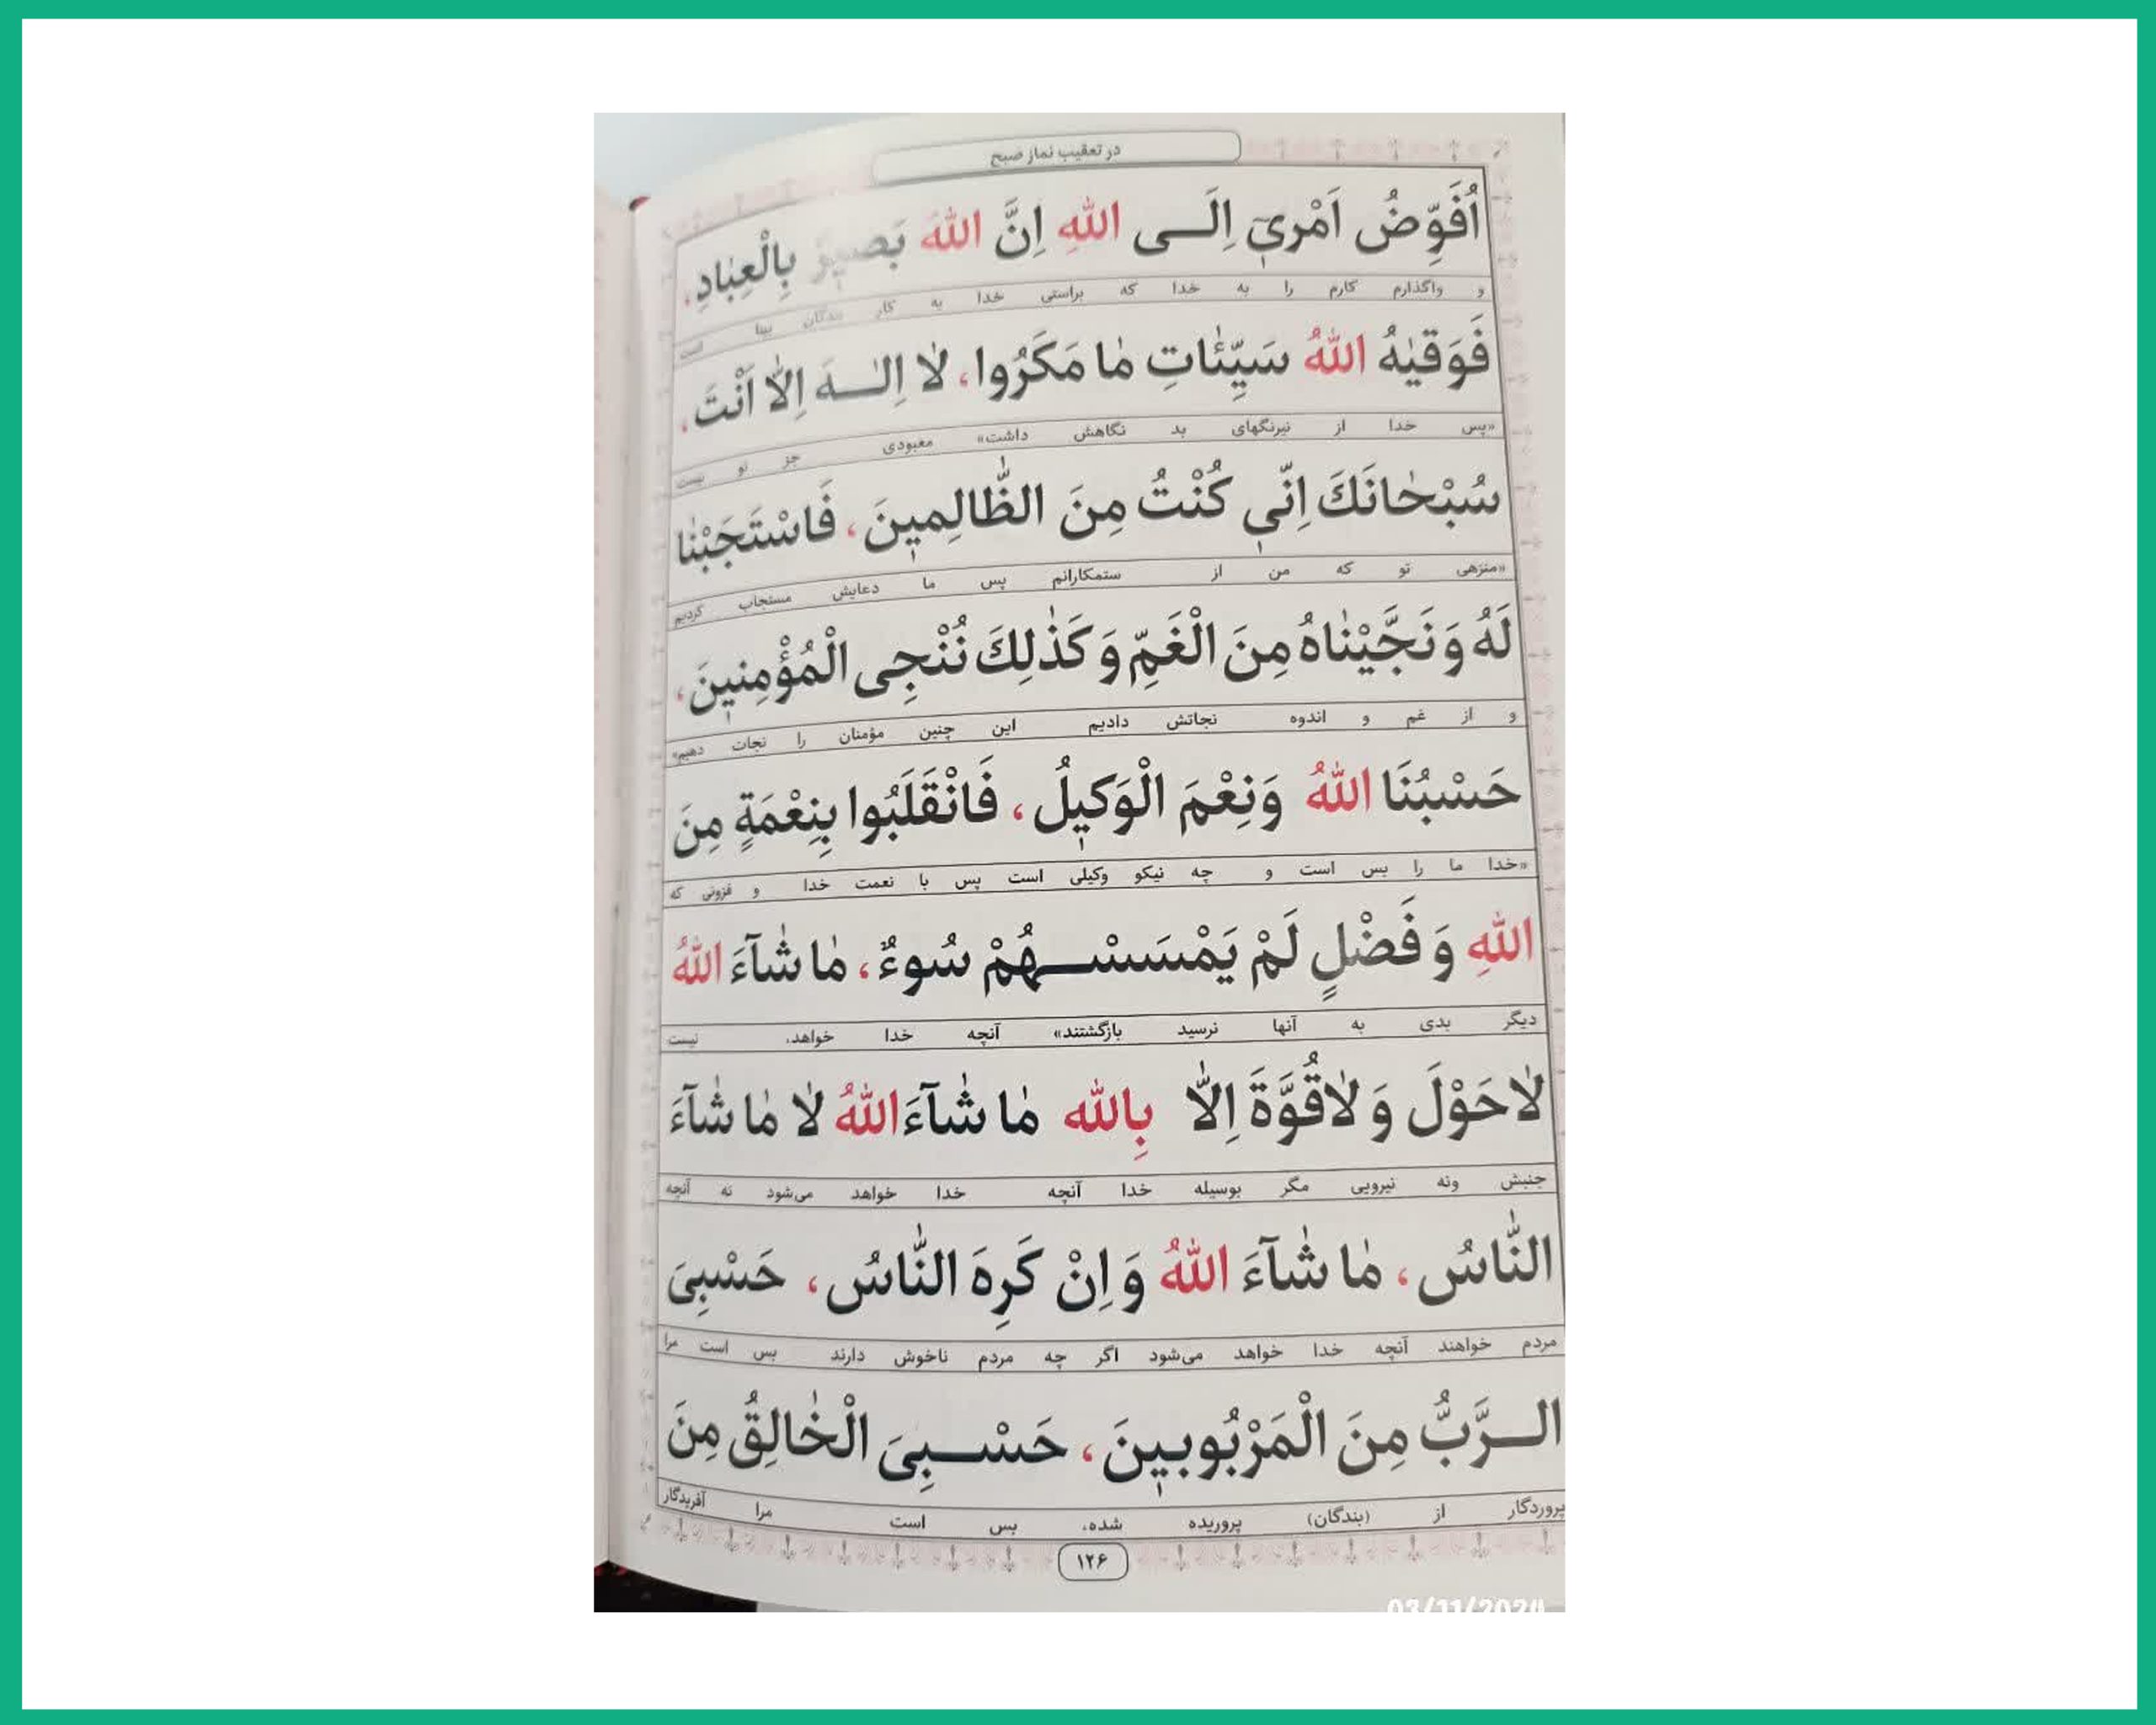 در تعقیب نماز صبح
اُفَوِّضُ اَمْرىٓ اِلَـى اللّٰهِ اِنَّ اللّٰهَ بَصيرٌ بِالْعِبٰادِ،
و واگذارم کارم را به خدا که براستی خدا به کار بندگان بینا است
فَوَقٰيهُ اللّٰهُ سَيِّئٰاتِ مٰا مَكَرُوا، لٰا اِلٰـهَ اِلّٰا اَنْتَ،
«پس خدا از نیرنگهای بد نگاهش داشت» معبودی جز تو نیست
سُبْحٰانَكَ اِنّى كُنْتُ مِنَ الظّٰالِمينَ، فَاسْتَجَبْنٰا
«منزهی تو که من از ستمکارانم پس ما دعایش مستجاب کردیم
لَهُ وَ نَجَّيْنٰاهُ مِنَ الْغَمِّ وَ كَذٰلِكَ نُنْجِى الْمُؤْمِنينَ،
و از غم و اندوه نجاتش دادیم این چنین مؤمنان را نجات دهیم»
حَسْبُنَا اللّٰهُ وَنِعْمَ الْوَكيلُ، فَانْقَلَبُوا بِنِعْمَةٍ مِنَ
«خدا ما را بس است و چه نیکو وکیلی است پس با نعمت خدا و فزونی که
اللّٰهِ وَ فَضْلٍ لَمْ يَمْسَسْـهُمْ سُوءٌ، مٰا شٰآءَ اللّٰهُ
دیگر بدی به آنها نرسید بازگشتند» آنچه خدا خواهد، نیست
لٰاحَوْلَ وَ لٰاقُوَّةَ اِلّٰا بِاللّٰه مٰا شٰآءَ اللّٰهُ لٰا مٰا شٰآءَ
جنبش ونه نیرویی مگر بوسیله خدا آنچه خدا خواهد می‌شود نه آنچه
النّٰاسُ، مٰا شٰآءَ اللّٰهُ وَ اِنْ كَرِهَ النّٰاسُ، حَسْبِىَ
مردم خواهند آنچه خدا خواهد می‌شود اگر چه مردم ناخوش دارند بس است مرا
الـرَّبُّ مِنَ الْمَرْبُوبينَ، حَسْـبِىَ الْخٰالِقُ مِنَ
پروردگار از (بندگان) پروریده شده، بس است مرا آفریدگار
۱۲۶
03/11/2024